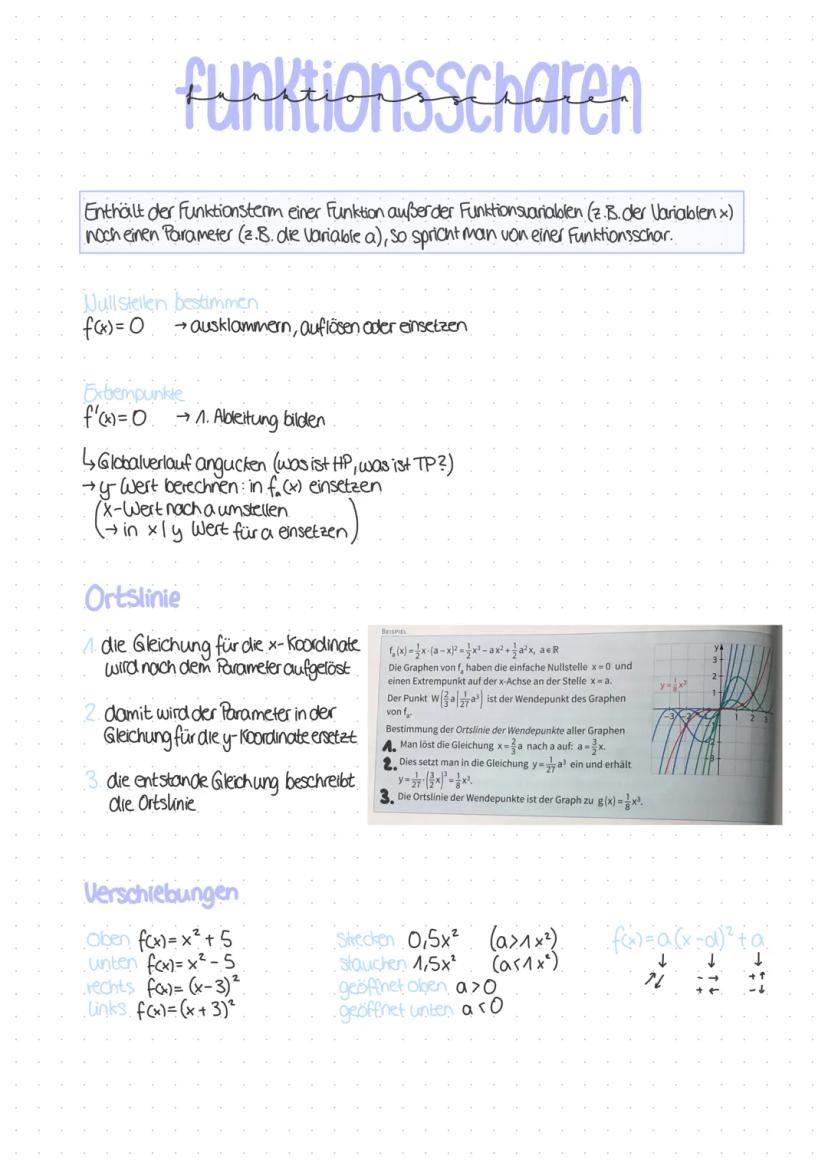 funktionsscharen
funktionsscharen
Enthält der Funktionsterm einer Funktion außer der Funktionsvariablen (z.B. der Variablen x)
noch einen Parameter (z.B. die Variable a), so spricht man von einer Funktionsschar.
Nullstellen bestimmen
f(x) = 0 → ausklammern, auflösen oder einsetzen
Extrempunkte
f'(x) = 0 → 1. Ableitung bilden
↳ Globalverlauf angucken (was ist HP, was ist TP?)
→ y-Wert berechnen: in fₐ(x) einsetzen
(x-Wert nach a umstellen
→ in x | y Wert für a einsetzen)
Ortslinie
1. die Gleichung für die x-Koordinate
wird nach dem Parameter aufgelöst
2. damit wird der Parameter in der
Gleichung für die y-Koordinate ersetzt
3. die entstande Gleichung beschreibt
die Ortslinie
BEISPIEL
fₐ(x) = 1/2 x·(a − x)² = 1/2 x³ − ax² + 1/2 a²x, a∈ℝ
Die Graphen von fₐ haben die einfache Nullstelle x = 0 und
einen Extrempunkt auf der x-Achse an der Stelle x = a.
Der Punkt W(2/3 a | 1/27 a³) ist der Wendepunkt des Graphen
von fₐ.
Bestimmung der Ortslinie der Wendepunkte aller Graphen
1. Man löst die Gleichung x = 2/3 a nach a auf: a = 3/2 x.
2. Dies setzt man in die Gleichung y = 1/27 a³ ein und erhält
y = 1/27 · (3/2 x)³ = 1/8 x³.
3. Die Ortslinie der Wendepunkte ist der Graph zu g(x) = 1/8 x³.
y
3
2
y = 1/8 x³
1
-3 -2 1 2 3
Verschiebungen
Oben f(x) = x² + 5
unten f(x) = x² − 5
rechts f(x) = (x−3)²
Links f(x) = (x + 3)²
Strecken 0,5x² (a>1 x²)
stauchen 1,5x² (a<1 x²)
geöffnet oben a > 0
geöffnet unten a < 0
f(x) = a (x − d)² + a
↓ ↓ ↓
↗↙ − → + ↑
+ ← − ↓